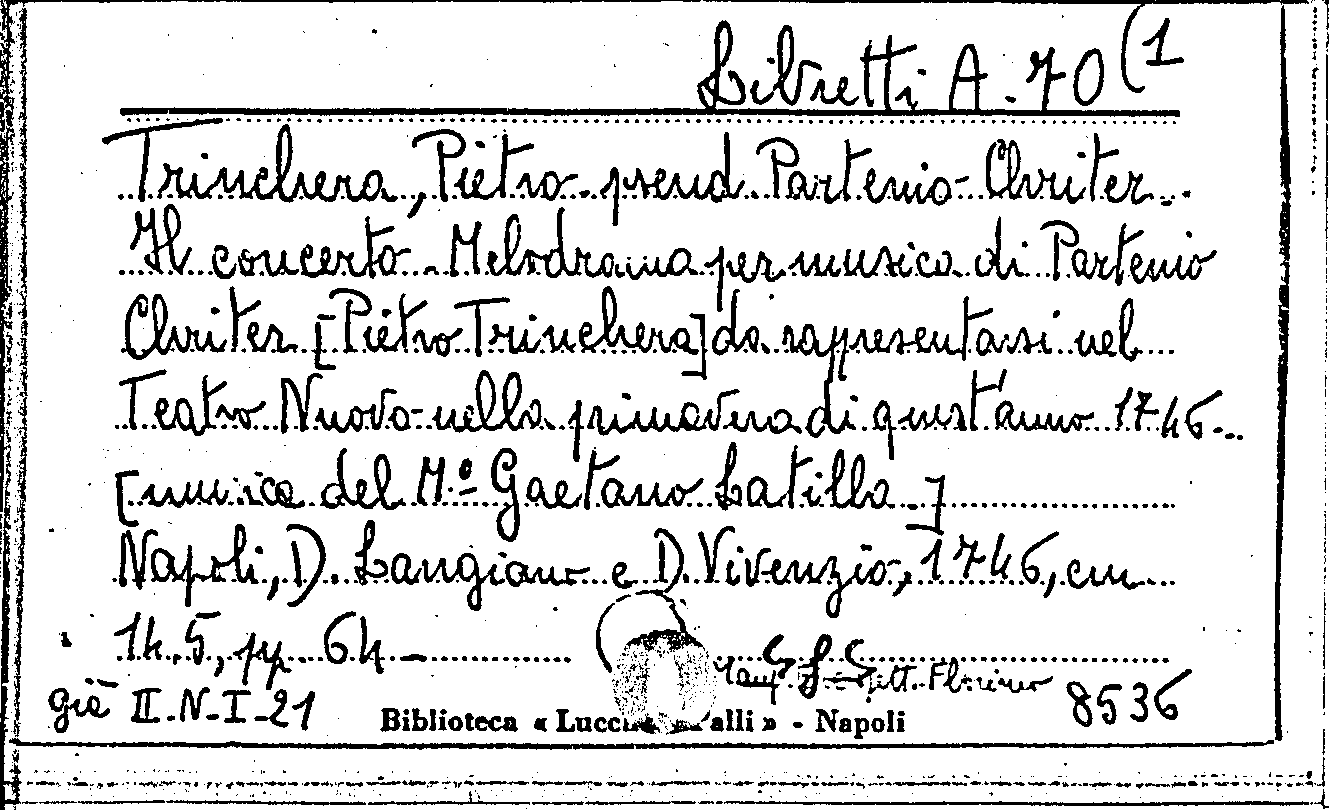 Libretti A. 70 (1
Trinchera, Pietro - pseud. Partenio Chriter -
Il concerto - Melodrama per musica di Partenio
Chriter [Pietro Trinchera] da rappresentarsi nel
Teatro Nuovo nella primavera di quest'anno 1746 -
[musica del M.º Gaetano Latilla]
Napoli, D. Langiano e D. Vivenzio, 1746, cm
14.5, pp. 64 -
Florimo
già II.N-I-21 8536
Biblioteca « - Napoli